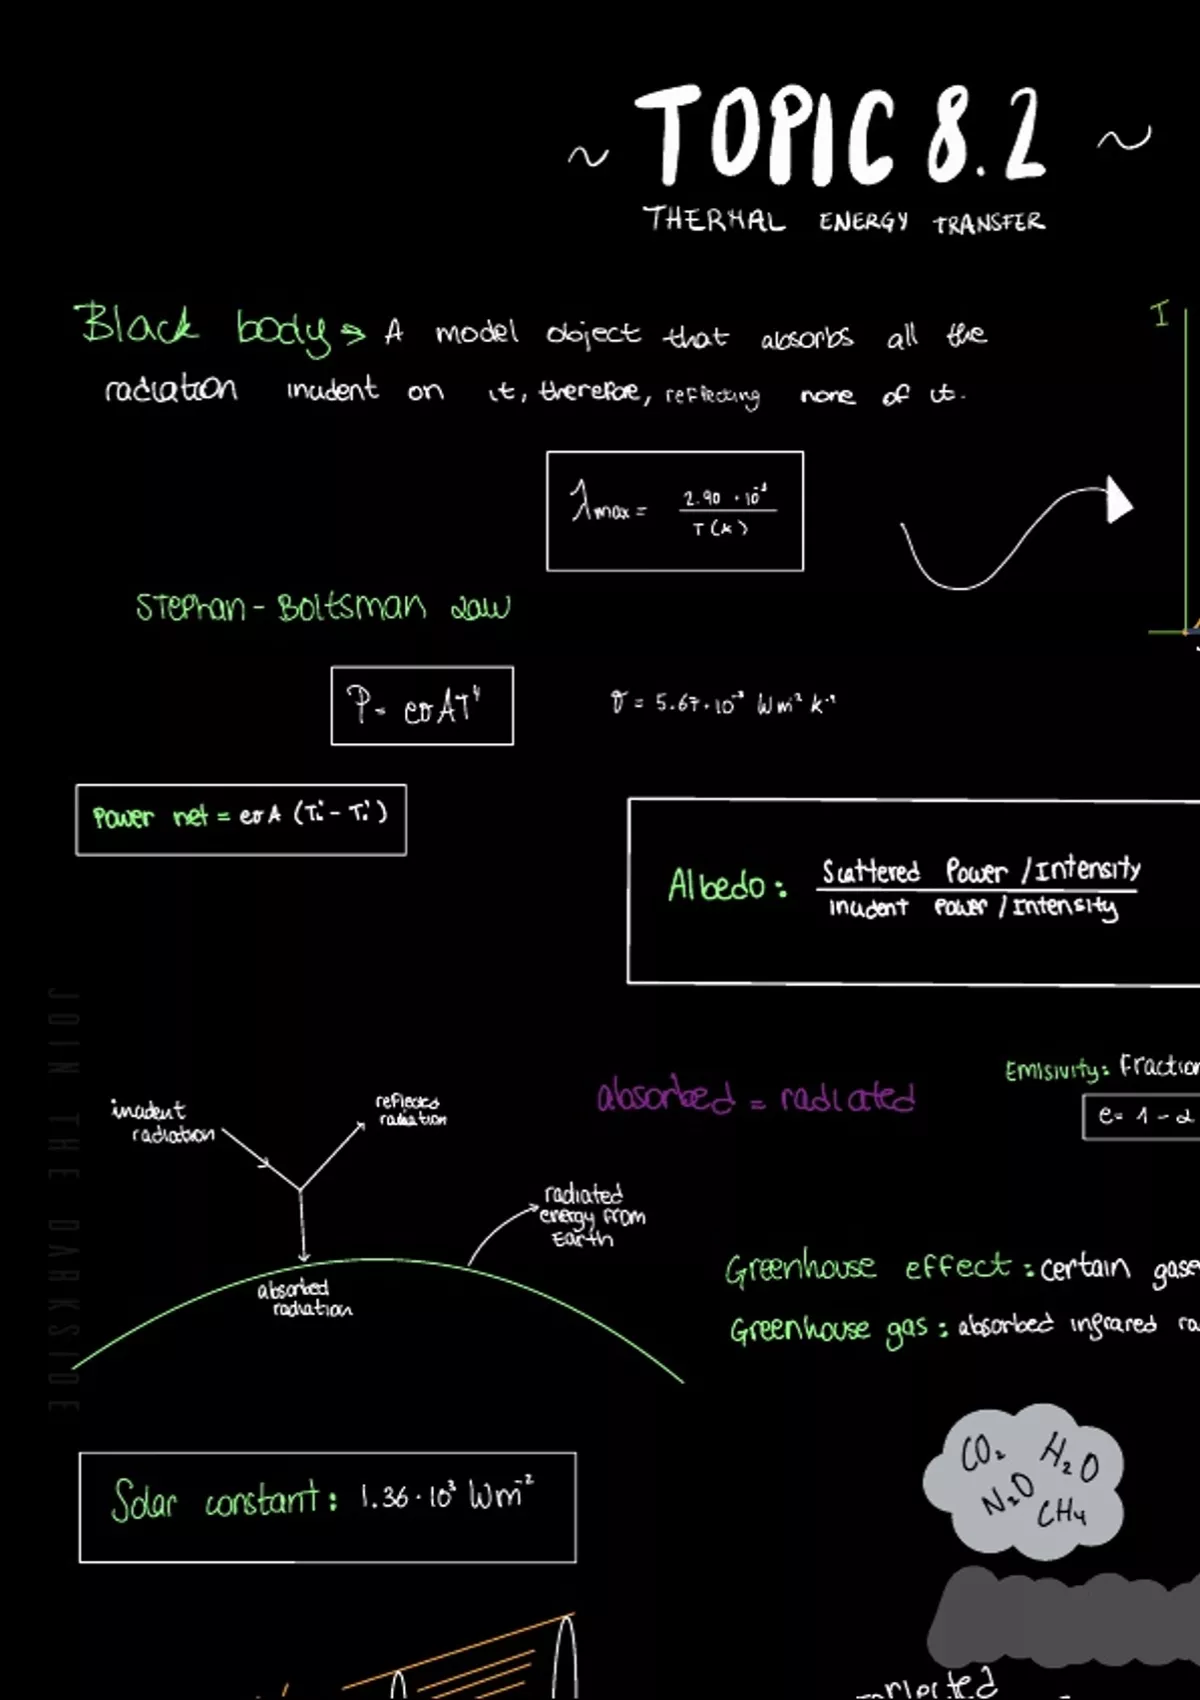 ~ TOPIC 8.2 ~
THERMAL ENERGY TRANSFER
Black body → A model object that absorbs all the
radiation incident on it, therefore, reflecting none of it.
I
λmax = 2.90 · 10⁻³
T (K)
Stephan-Boltsman Law
P = eσAT⁴
σ = 5.67 · 10⁻⁸ Wm⁻² K⁻⁴
Power net = eσA
Albedo: Scattered Power / Intensity
incident Power / Intensity
JOIN THE DARKSIDE
absorbed = radiated
Emisivity: Fraction
e = 1 - α
incident
radiation
reflected
radiation
radiated
energy from
Earth
absorbed
radiation
Greenhouse effect: certain gase
Greenhouse gas: absorbed infrared ra
Solar constant: 1.36 · 10³ Wm⁻²
CO₂ H₂O
N₂O CH₄